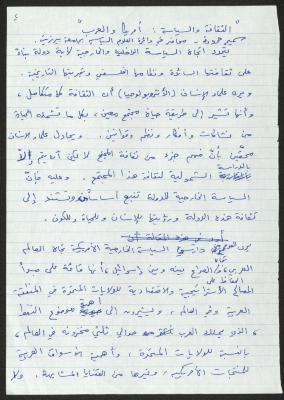 ٤
"الثقافة والسياسة: أمريكا والعرب"
سميح حمودة - محاضر في دائرة العلوم السياسية بجامعة بيرزيت
يتحدد اتجاه السياسة الداخلية والخارجية لأية دولة بناء
على ثقافتها السائدة ونظامها الفلسفي وتجربتها التاريخية.
ويرى علماء الإنسان (الأنثروبولوجيا) أن الثقافة كل متكامل،
وأنها تشير إلى طريقة حياة مجتمع معين، بكل ما تشمله الحياة
من نشاطات وأفكار ونظم وقوانين. ويجادل علماء الإنسان
محقين بأن فهم جزء من ثقافة المجتمع لا يمكن أن يتم إلا
بالدراسة
الشمولية لثقافة هذا المجتمع. وعليه فإن
السياسة الخارجية للدولة تنبع أساساً وتستند إلى
ثقافة هذه الدولة ورؤيتها للإنسان وللحياة وللكون.
في هذه المقالة
السياسة الخارجية الأمريكية تجاه العالم
العربي، تجاه الصراع بينه وبين إسرائيل، أنها قائمة على مبدأ
الحفاظ على
المصالح الاستراتيجية والاقتصادية للولايات المتحدة في المنطقة
العربية وفي العالم، ويشيرون إلى أهمية موضوع النفط
، الذي يمتلك العرب حوالي ثلثي مخزونه في العالم،
بالنسبة للولايات المتحدة، وأهمية الأسواق العربية
للمنتجات الأمريكية، وغيرها من القضايا المشابهة. ولا